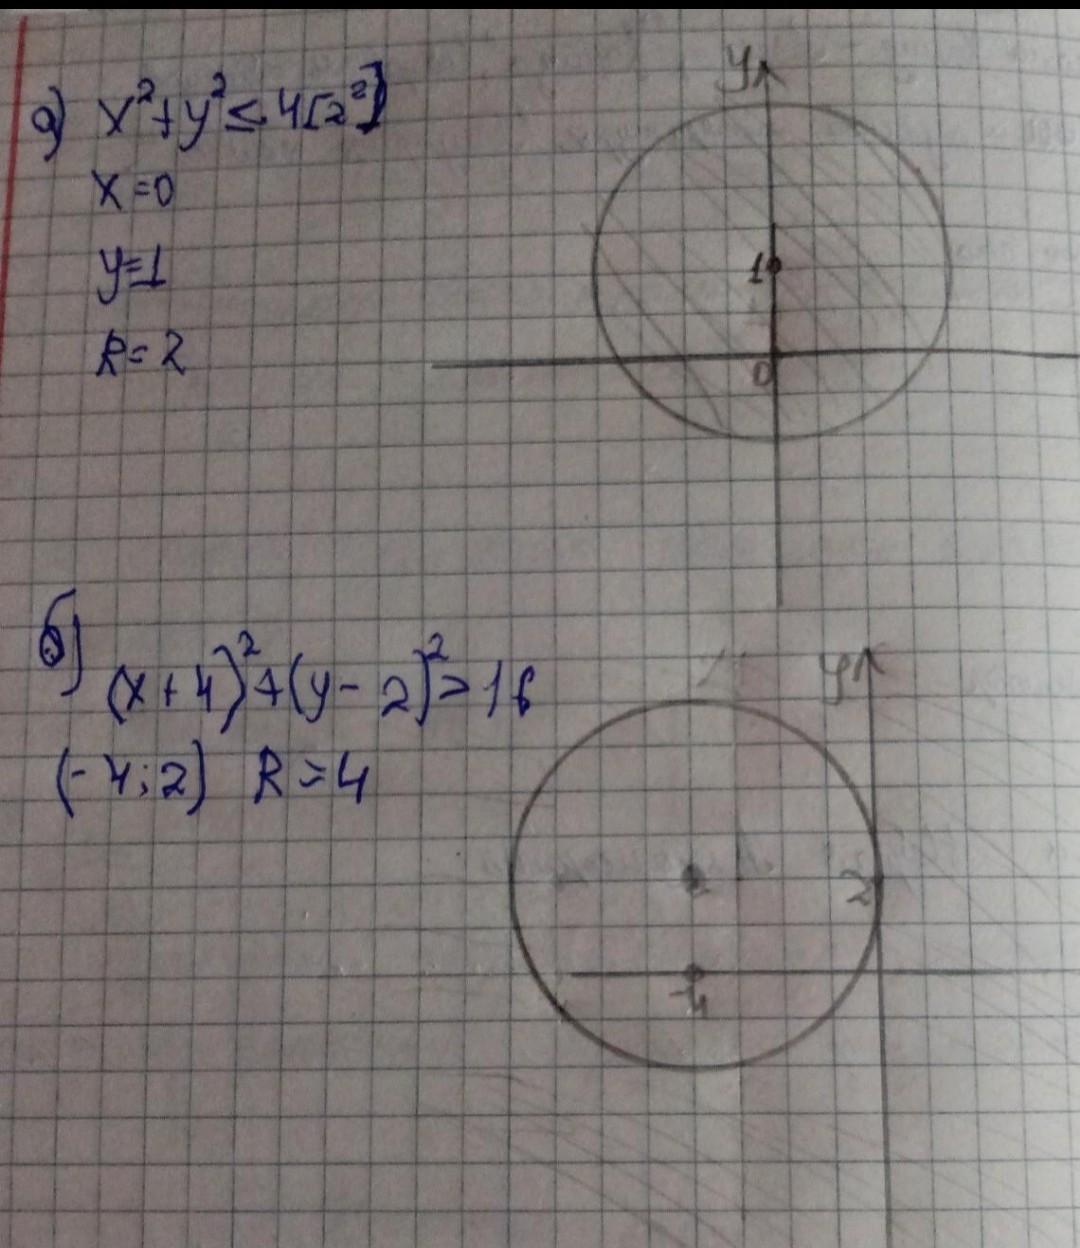 а) x²+y²≤4[2²]
x=0
y=1
R=2
y
1
0
б)
(x+4)²+(y-2)²>16
(-4;2) R=4
y
2
-4